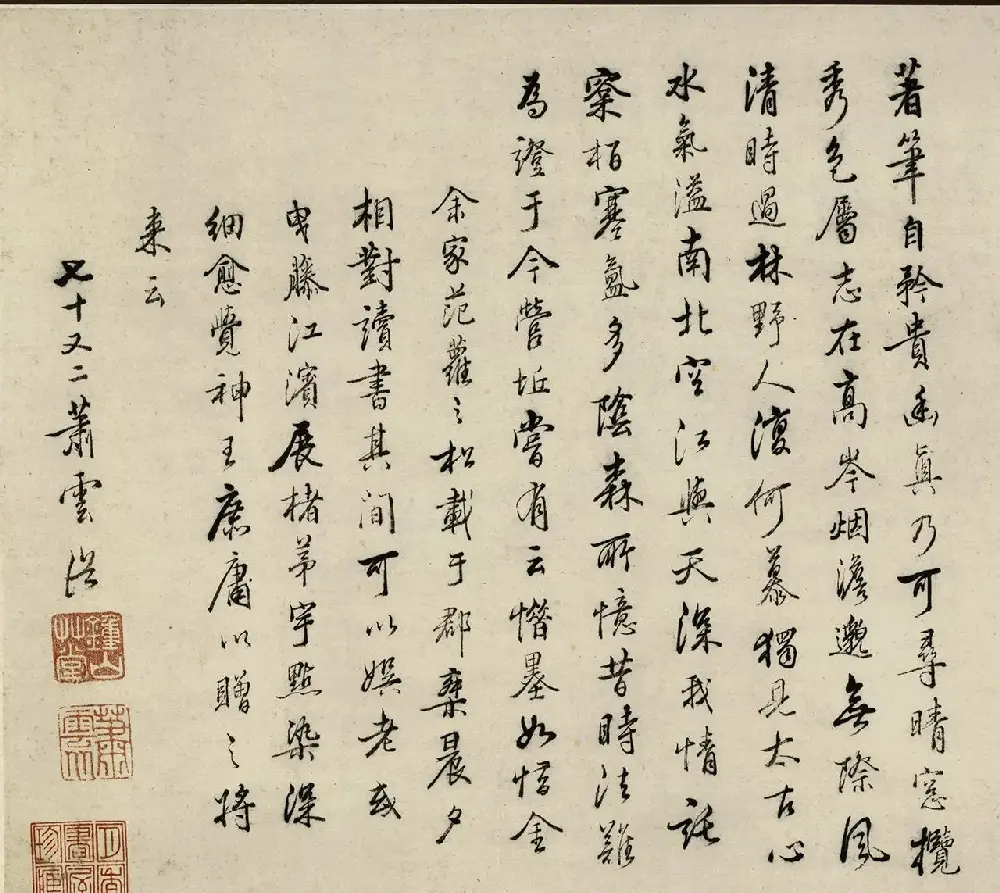 著筆自矜貴幽真乃可尋晴窓攬
秀色屬志在高岑烟澹邈無際風
清時過林野人復何慕獨見太古心
水氣溢南北空江與天深我情託
寀栢寒氳多陰森所憶昔時法難
為證于今營坵嘗有云惜墨如惜金
余家范蘿之松載于郡乘晨夕
相對讀書其間可以娯老或
曳藤江濱展楮茅宇點染深
細愈覺神王賡庸以贈之將
來云
七十又二蕭雲從
鍾山草堂
蕭雲從